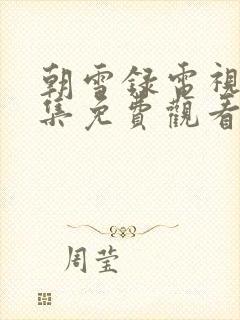 朝雪録電視
集免費觀看
周莹